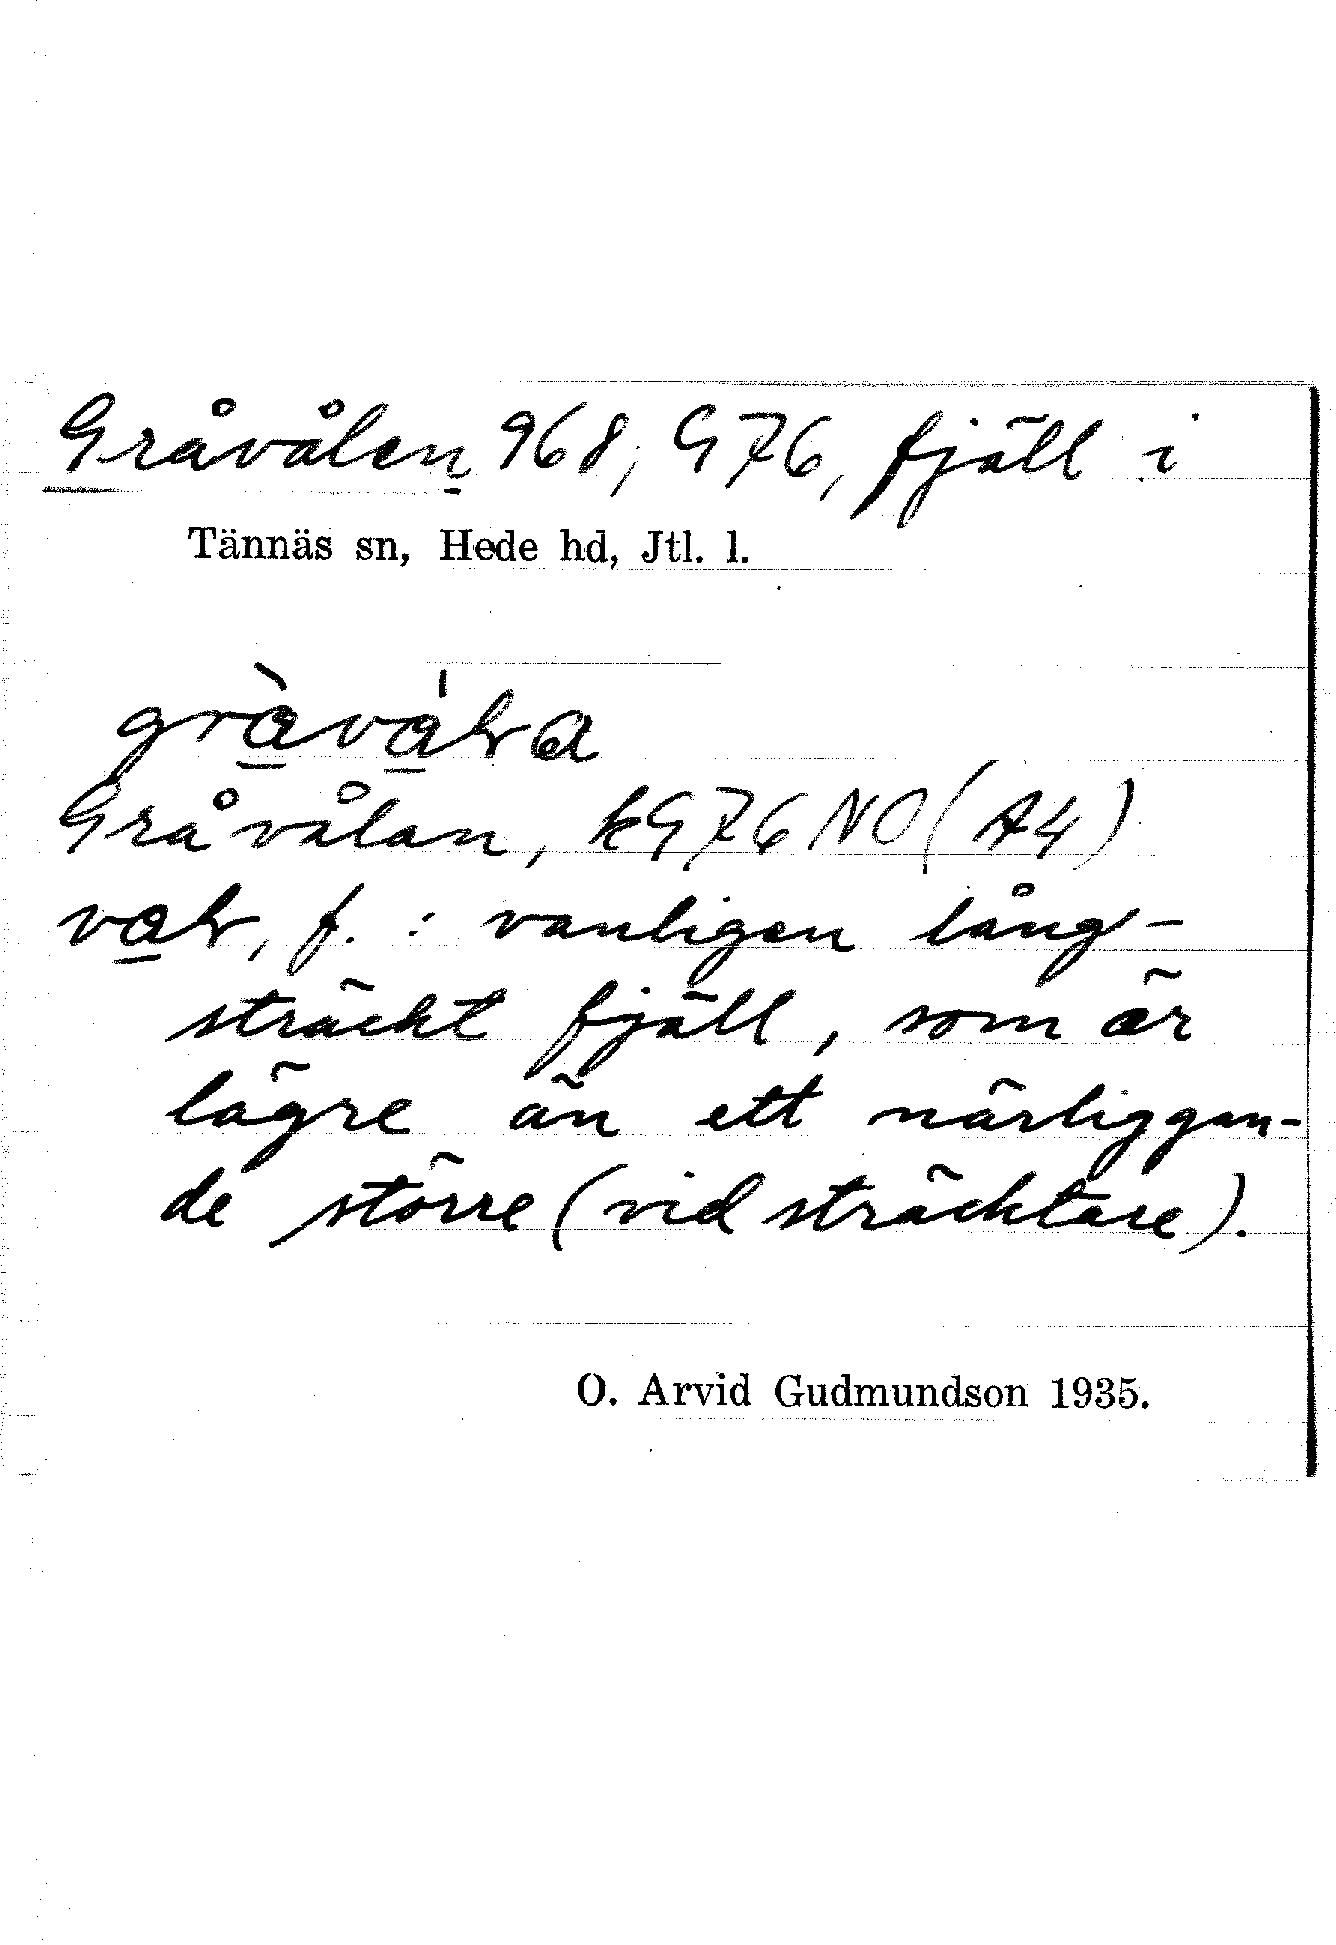 Gråvålen 968, G76, fjäll i
Tännäs sn, Hede hd, Jtl. l.
Gråvålan, kG76NO(A4)
f. : vanligen lång-
sträckt fjäll, som är
lägre än ett närliggan-
de större (vid sträcktare).
O. Arvid Gudmundson 1935.